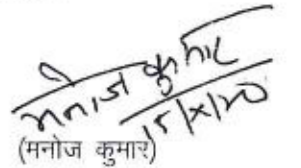 मनोज कुमार
15/X/20
(मनोज कुमार)